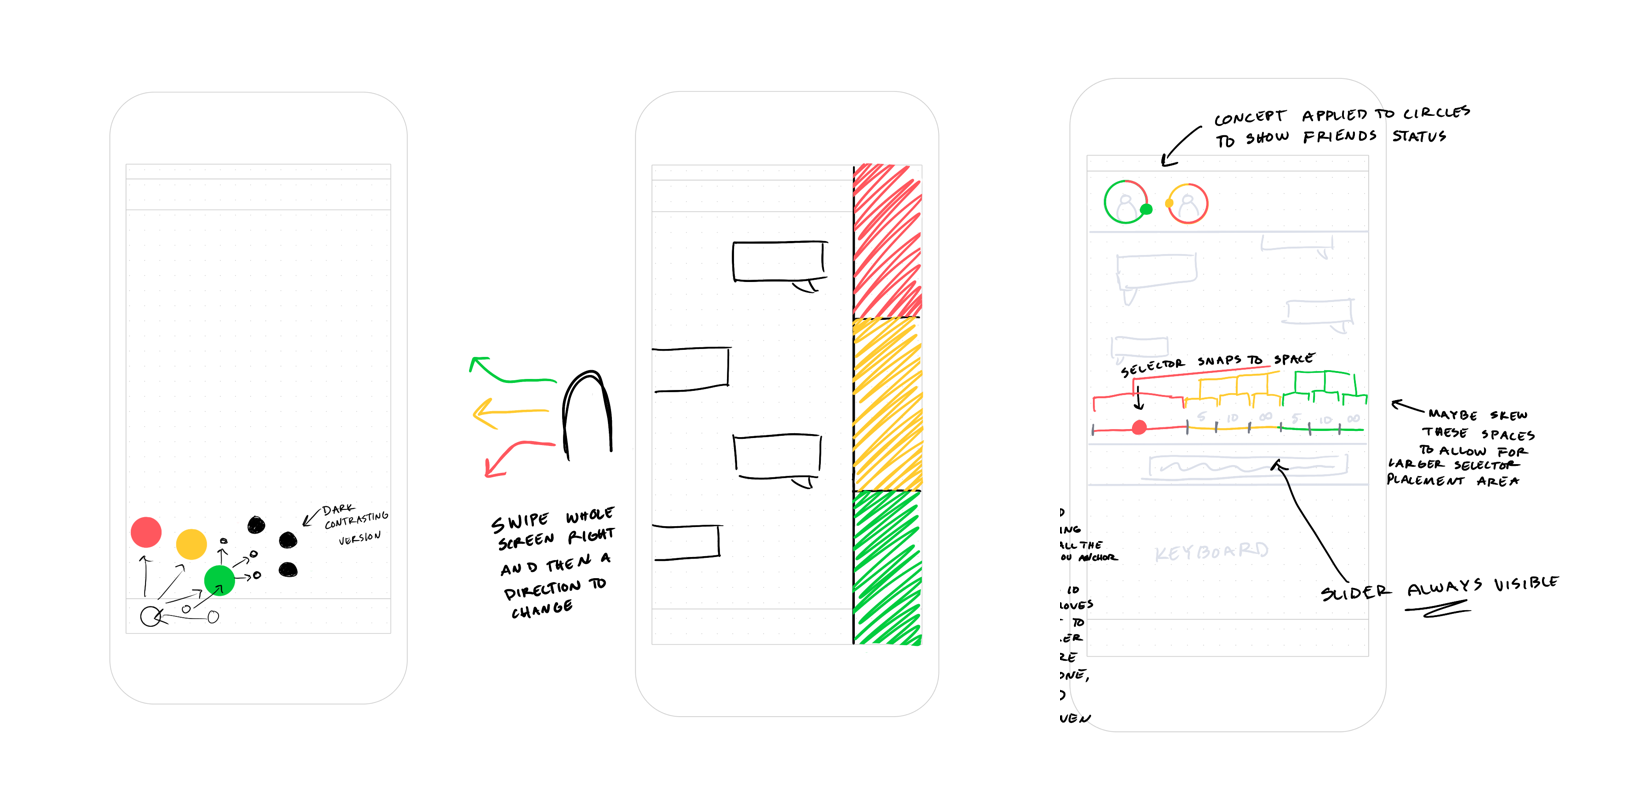 DARK
CONTRASTING
VERSION
SWIPE WHOLE
SCREEN RIGHT
AND THEN A
DIRECTION TO
CHANGE
CONCEPT APPLIED TO CIRCLES
TO SHOW FRIENDS STATUS
SELECTOR SNAPS TO SPACE
5 10 ∞ 5 10 ∞
MAYBE SKEW
THESE SPACES
TO ALLOW FOR
LARGER SELECTOR
PLACEMENT AREA
KEYBOARD
SLIDER ALWAYS VISIBLE
ING
ALL THE
OU ANCHOR
ID
OVES
TO
ER
RE
ONE,
VEN